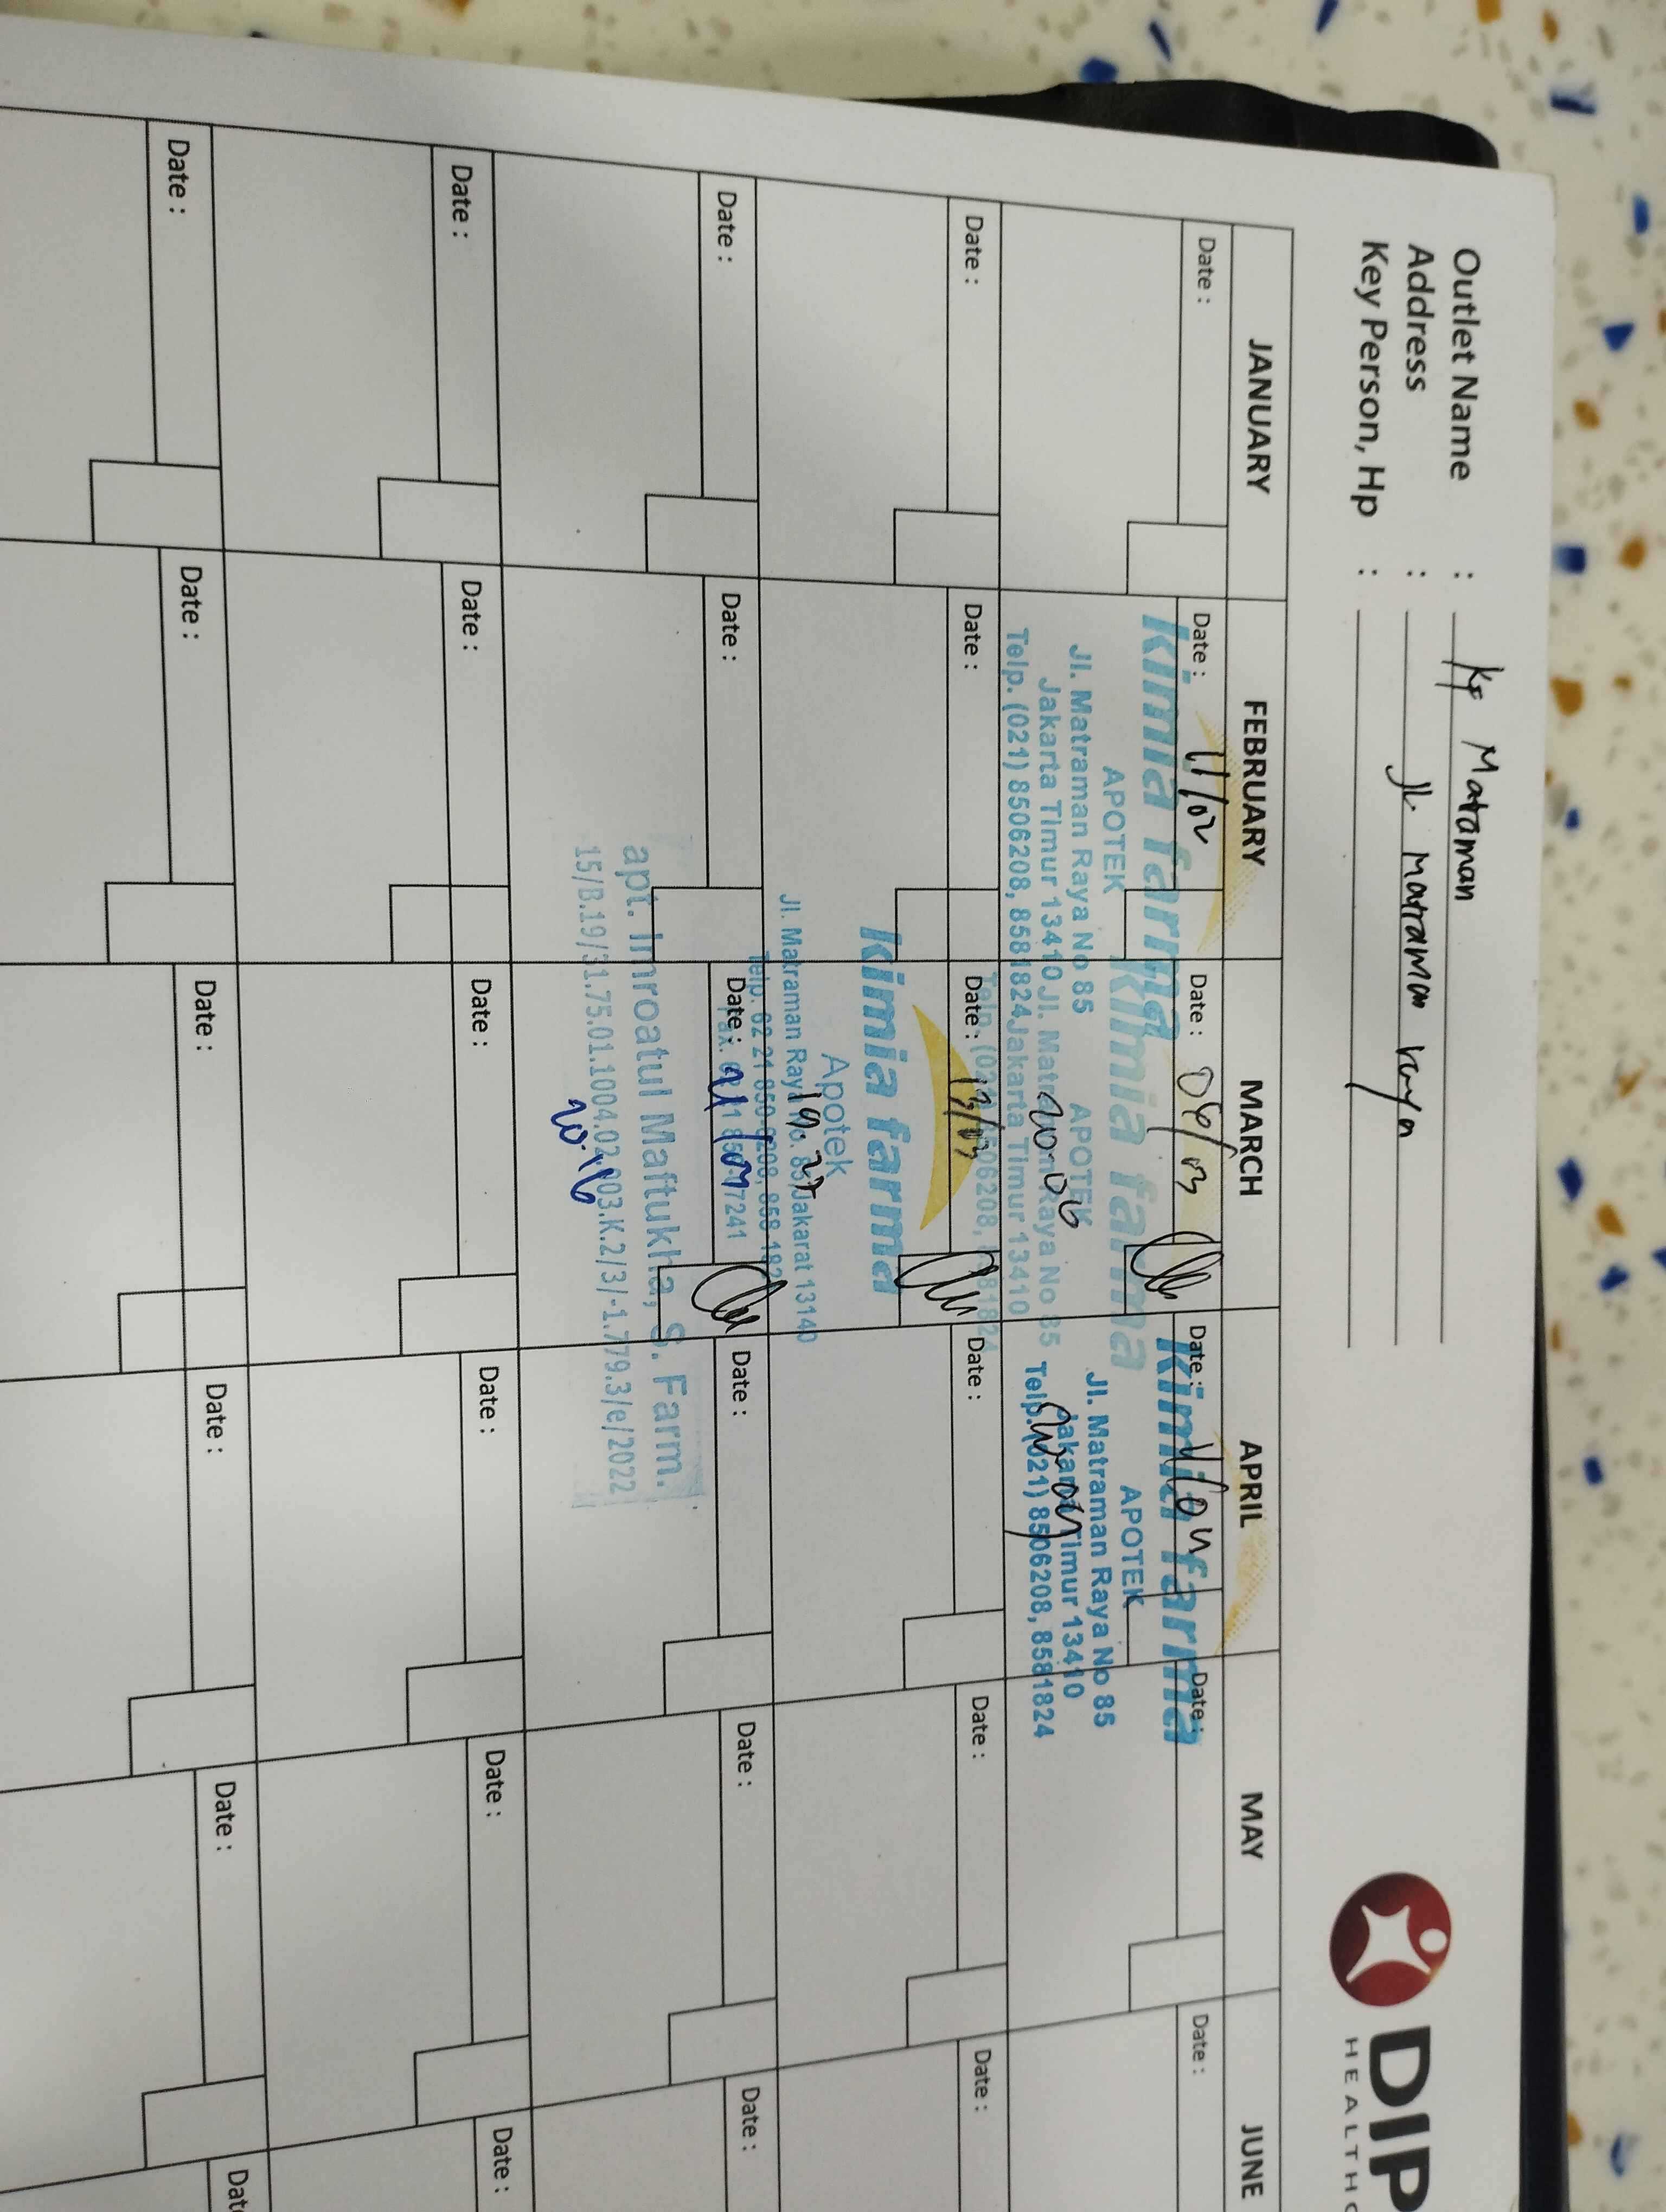 Outlet Name : Kf Matraman
Address : Jl. Matraman raya
Key Person, Hp :
DIP
HEALTHC
JANUARY FEBRUARY MARCH APRIL MAY JUNE
Date : Date : 11/02 Date : 08/03 Date : 11/04 Date : Date :
kimia farma
APOTEK
Jl. Matraman Raya No 85
Jakarta Timur 13410
Telp. (021) 8506208, 8581824
kimia farma
APOTEK
Jl. Matraman Raya No 85
Jakarta Timur 13410
Telp. (021) 8506208, 8581824
20.06
kimia farma
APOTEK
Jl. Matraman Raya No 85
Jakarta Timur 13410
Telp. (021) 8506208, 8581824
Date : Date : Date : 13/03 Date : Date : Date :
kimia farma
Apotek
Jl. Matraman Raya No. 85 Jakarat 13140
19.27
Telp. 62 21 850 6208, 858 182
Date : Date : Date : 21/03 Date : Date : Date :
apt. Imroatul Maftukha, S. Farm.
15/B.19/31.75.01.1004.02.003.K.2/3/-1.779.3/e/2022
Date : Date : Date : Date : Date : Date :
Date : Date : Date : Date : Date : Dat